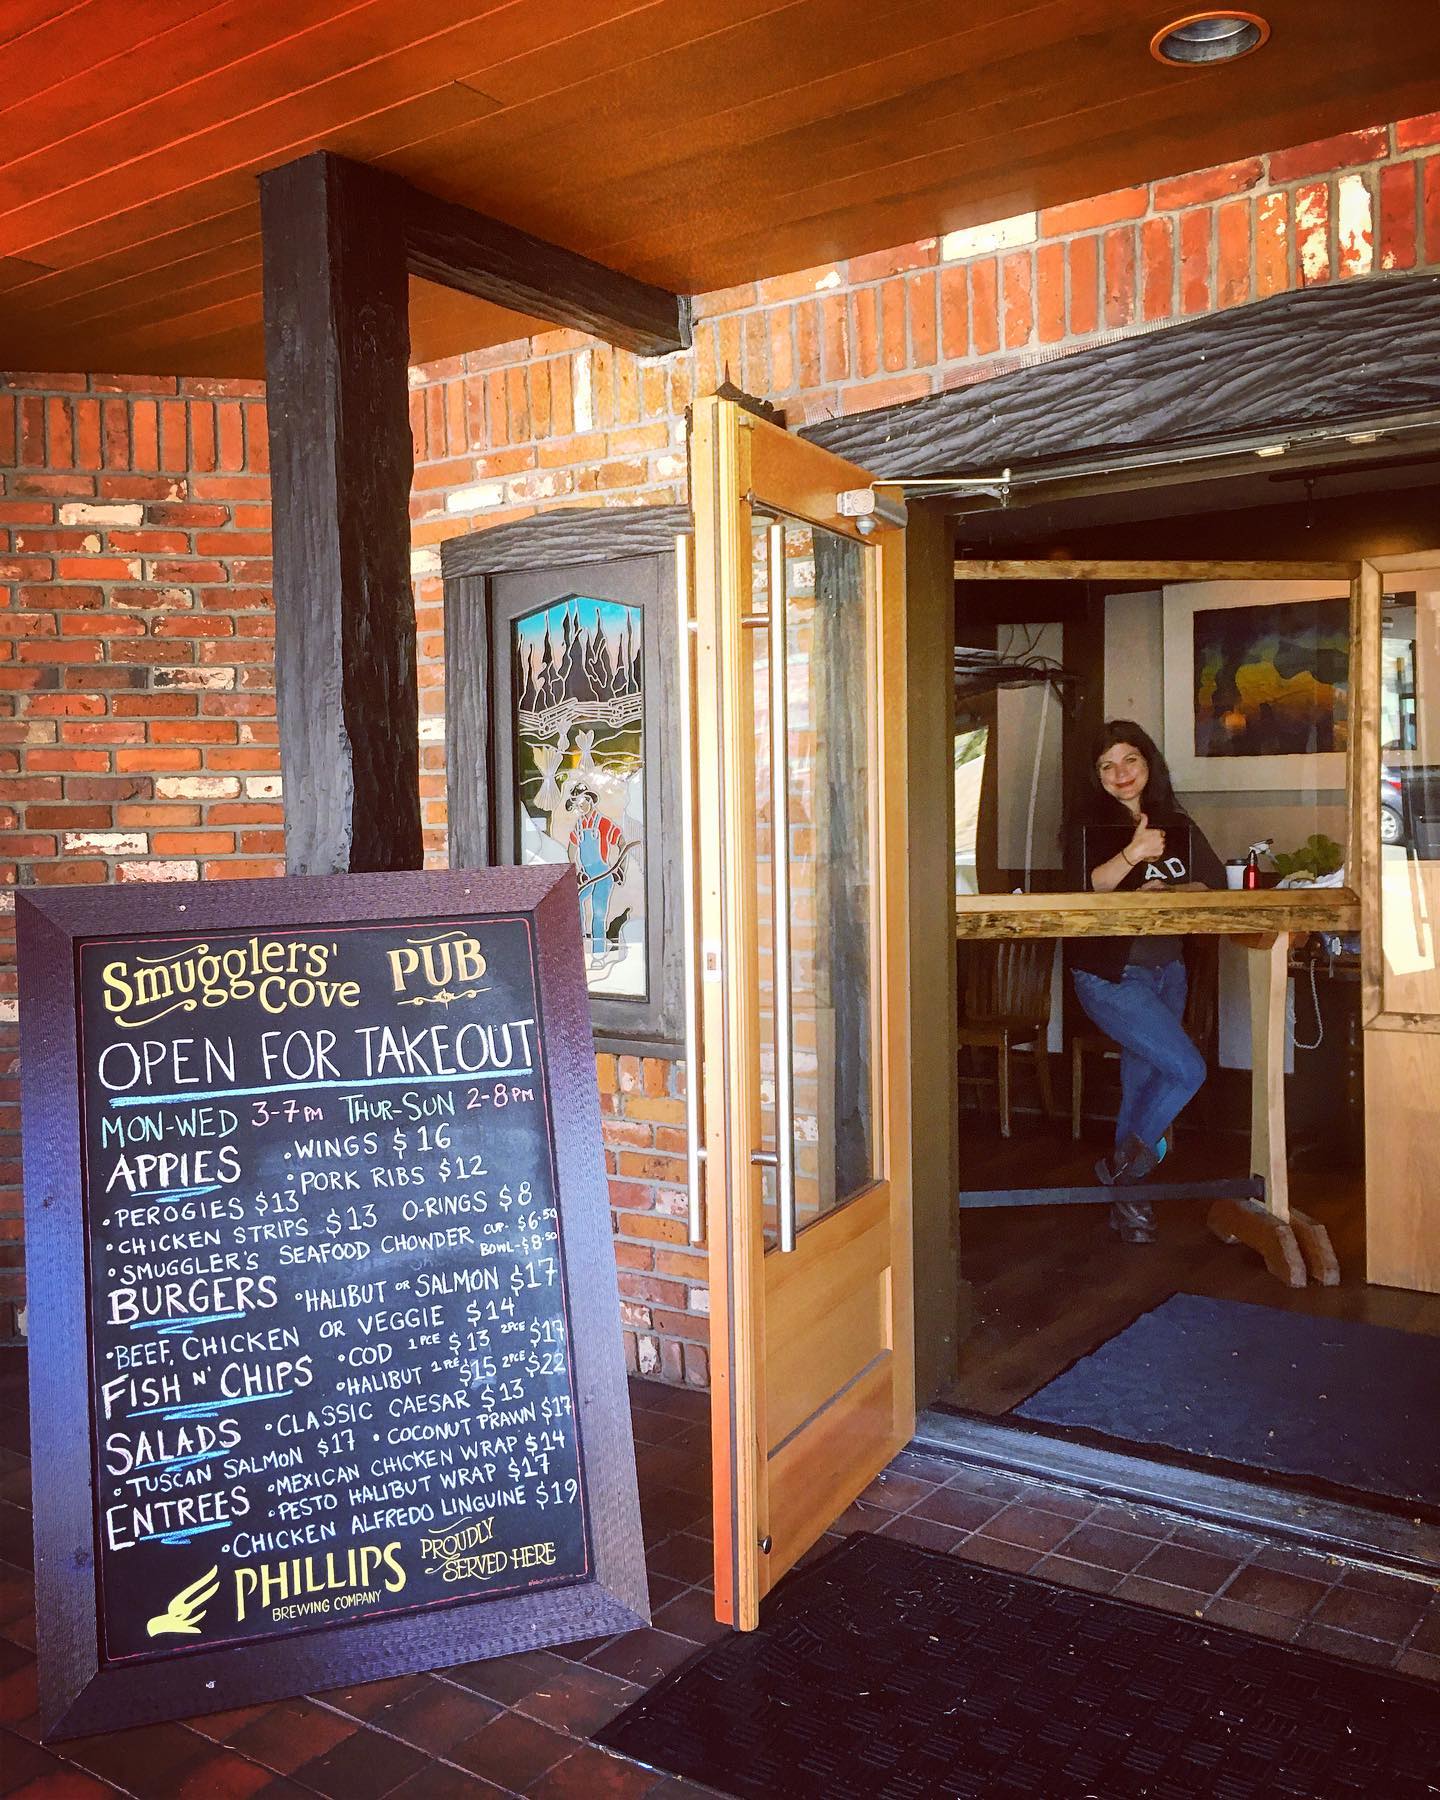 Smugglers' Cove PUB
OPEN FOR TAKEOUT
MON-WED 3-7PM THUR-SUN 2-8PM
APPIES •WINGS $16
•PORK RIBS $12
•PEROGIES $13
•CHICKEN STRIPS $13 O-RINGS $8
•SMUGGLER'S SEAFOOD CHOWDER CUP- $6.50
BOWL-$8.50
BURGERS •HALIBUT OR SALMON $17
•BEEF, CHICKEN OR VEGGIE $14
FISH N' CHIPS •COD 1PCE $13 2PCE $17
•HALIBUT 1PCE $15 2PCE $22
SALADS •CLASSIC CAESAR $13
•TUSCAN SALMON $17 •COCONUT PRAWN $17
ENTREES •MEXICAN CHICKEN WRAP $14
•PESTO HALIBUT WRAP $17
•CHICKEN ALFREDO LINGUINE $19
PHILLIPS
BREWING COMPANY
PROUDLY
SERVED HERE
AD